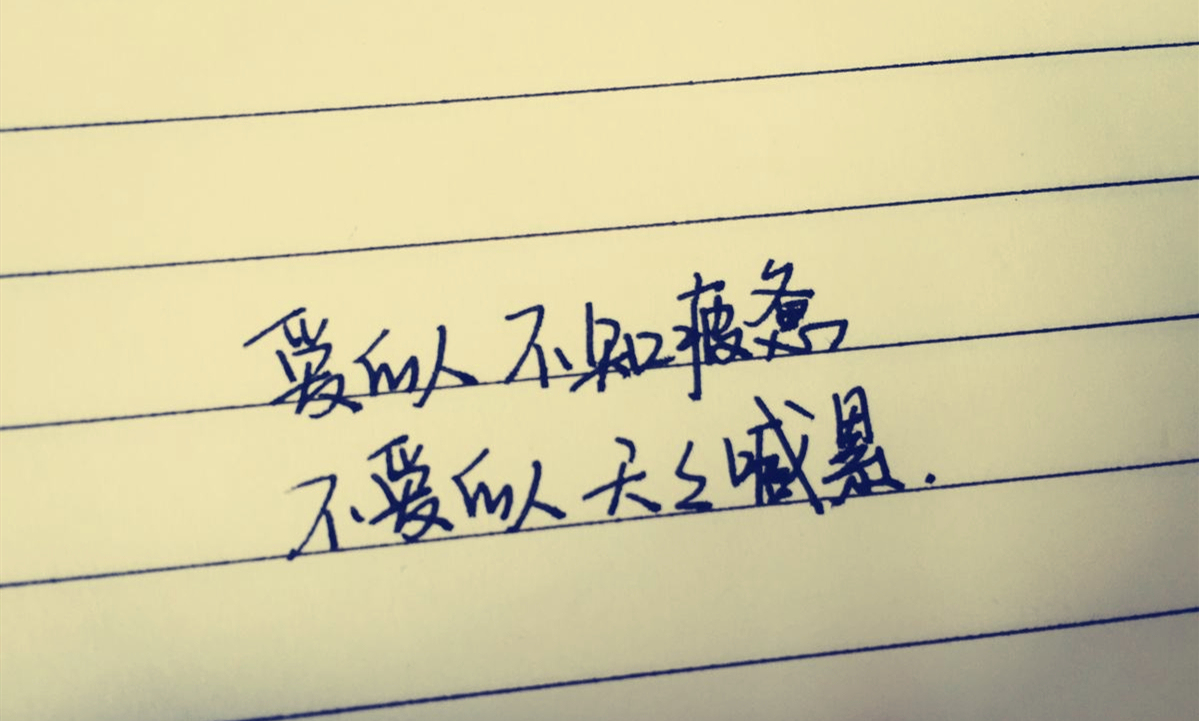 爱的人不知疲惫
不爱的人天天喊累.